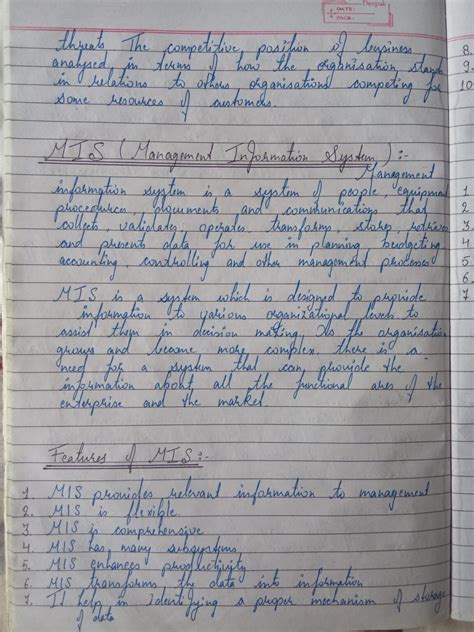 DATE:
PAGE:
threats. The competitive position of business
analysed in terms of how the organisation stands
in relations to others organisations competing for
some resources of customers.
MIS (Management Information System) :-
Management
information system is a system of people, equipment
procedures, documents and communications that
collects, validates, operates, transforms, stores, retrieves
and presents data for use in planning budgeting
accounting, controlling and other management processes
MIS is a system which is designed to provide
information to various organizational levels to
assist them in decision making. As the organisation
grows and become more complex, there is a
need for a system that can provide the
information about all the functional ares of the
enterprise and the market
Features of MIS :-
1. MIS provides relevant information to management
2. MIS is flexible.
3. MIS is comprehensive
4. MIS has many subsystems
5. MIS enhances productivity
6. MIS transforms the data into information
7. It help in identifying a proper mechanism of storage
of data
8.
9.
10
1
2
3.
4.
5.
6
7